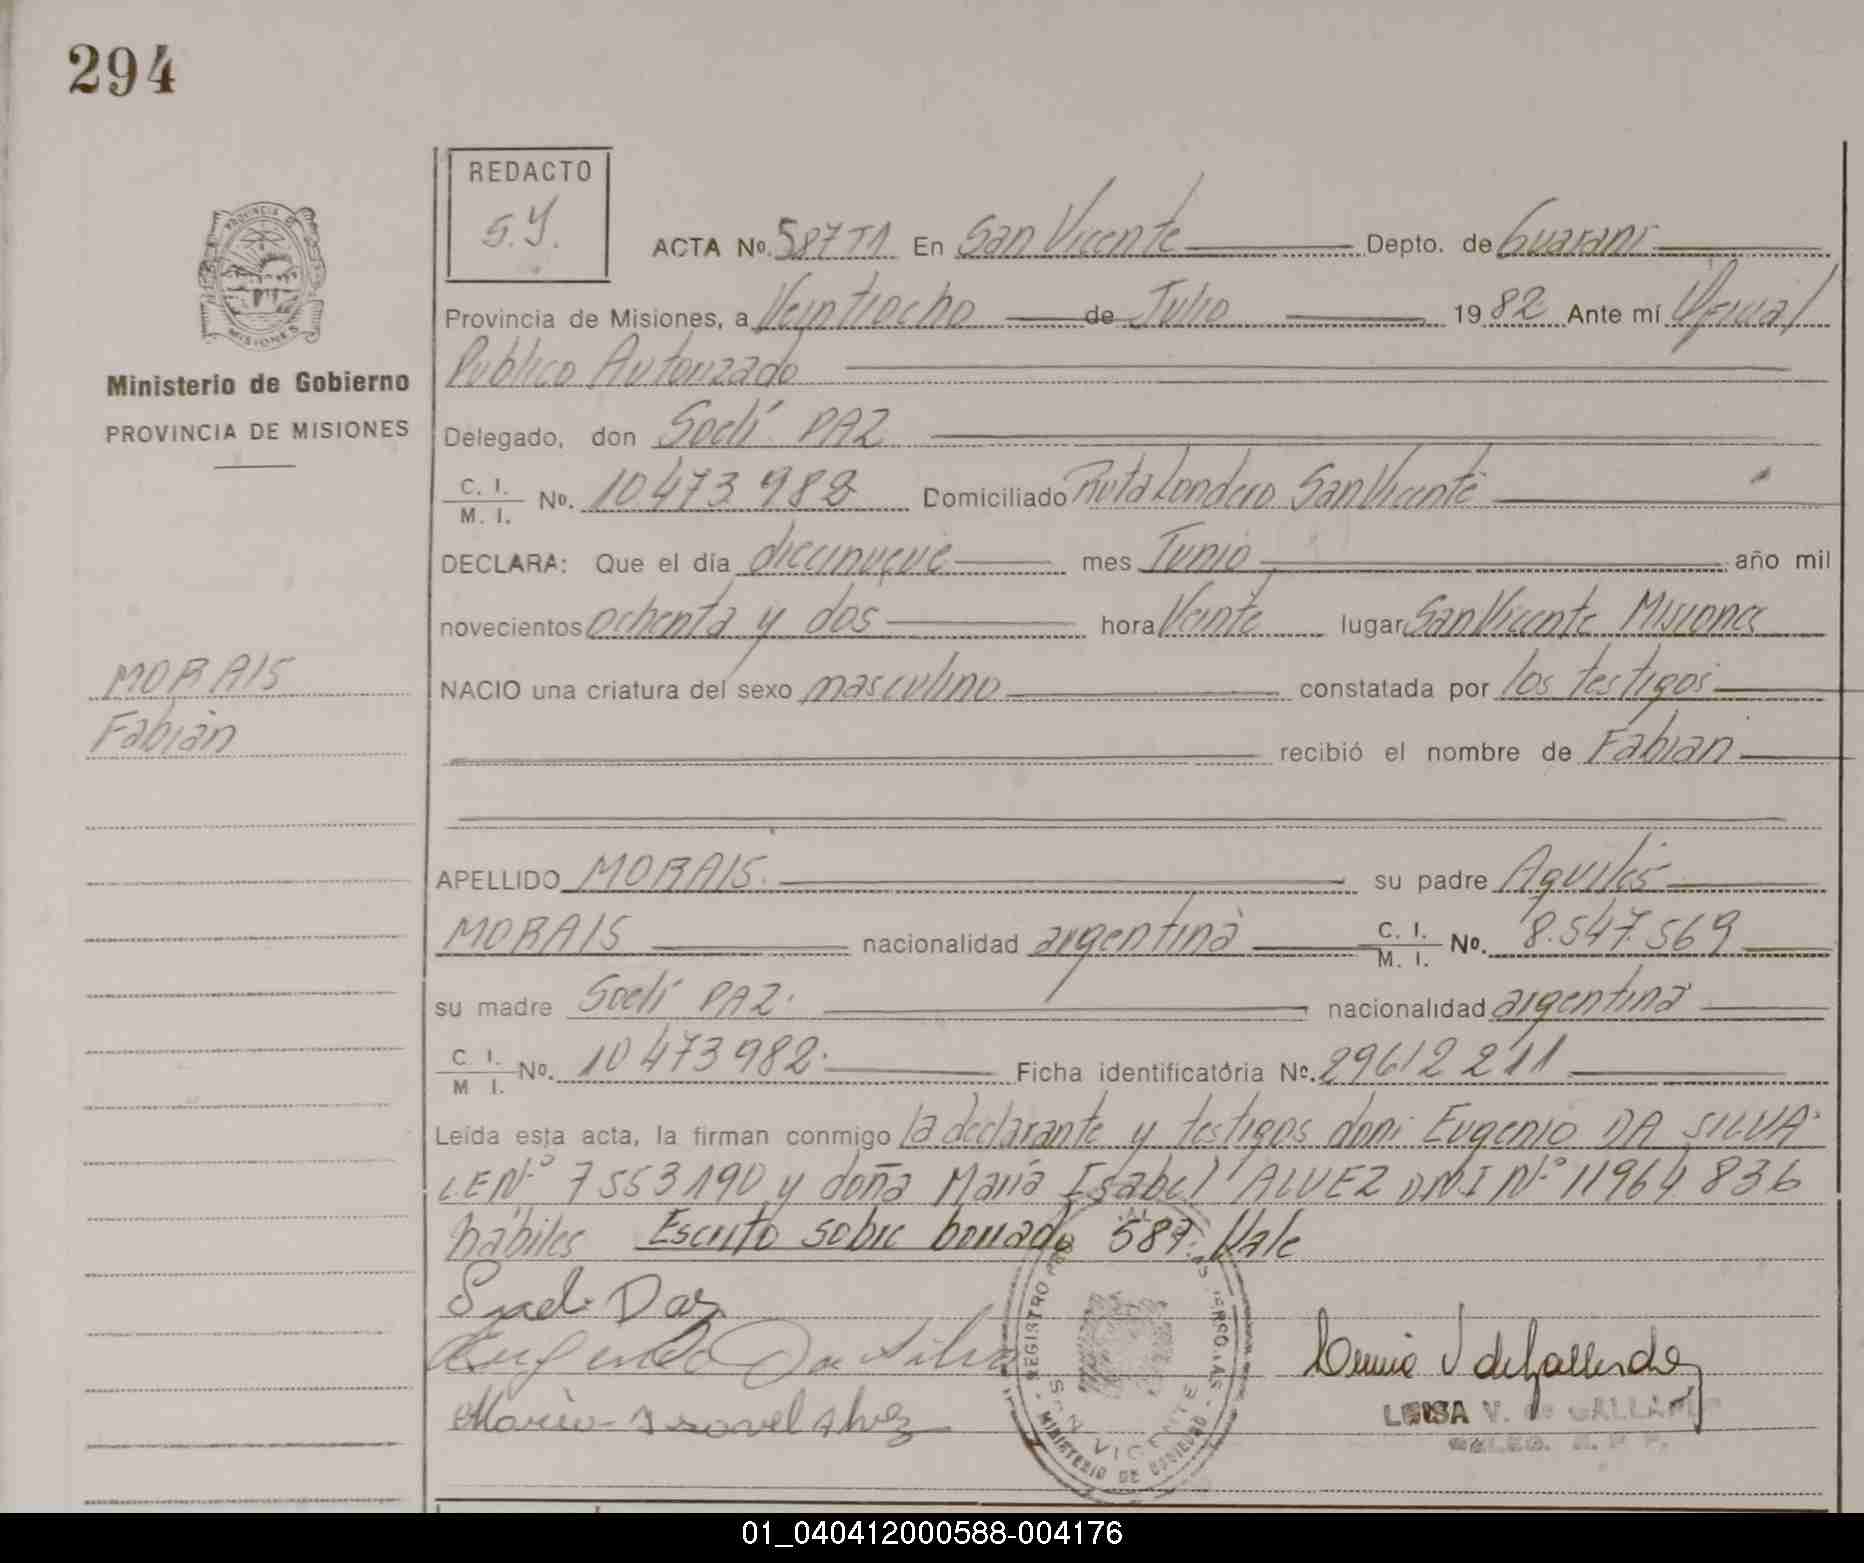 294
REDACTO
S.Y.
ACTA No. 587 T1 En San Vicente Depto. de Guaraní
Provincia de Misiones, a Veintiocho de Julio 1982 Ante mí Oficial
Publico Autorizado
Ministerio de Gobierno
PROVINCIA DE MISIONES
Delegado, don Soelí PAZ
C. I. / M. I. No. 10473 982 Domiciliado Ruta Londero San Vicente
DECLARA: Que el día diecinueve mes Junio año mil
novecientos ochenta y dos hora Veinte lugar San Vicente Misiones
MORAIS
Fabián
NACIO una criatura del sexo masculino constatada por los testigos
recibió el nombre de Fabian
APELLIDO MORAIS. su padre Aquiles
MORAIS nacionalidad argentina C. I. / M. I. No. 8.547.569
su madre Soelí PAZ. nacionalidad argentina
C. I. / M I. No. 10473982. Ficha identificatória No. 29612211
Leída esta acta, la firman conmigo la declarante y testigos don: Eugenio DA SILVA
L.E Nº 7553190 y doña María Isabel ALVEZ D.N.I Nº 11964836
hábiles Escrito sobre borrado 587. Vale
Eugenio Da Silva
LUISA V. de GALLARDO
REGISTRO
SAN VICENTE
MINISTERIO DE GOBIERNO
01_040412000588-004176